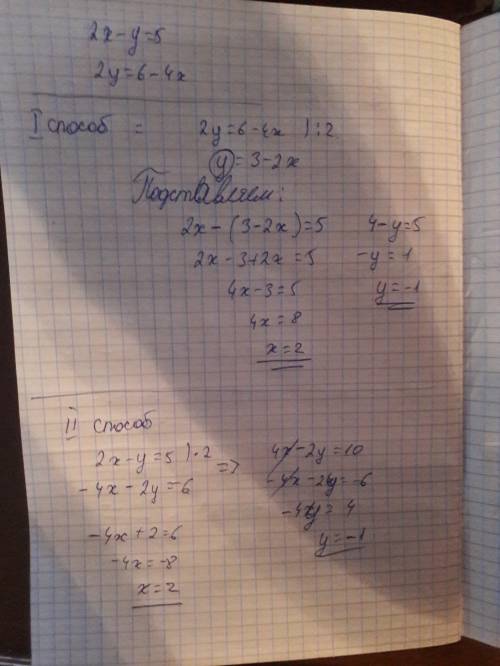 2x-y=5
2y=6-4x
I способ = 2y=6-4x ):2
y=3-2x
Подставляем:
2x-(3-2x)=5 4-y=5
2x-3+2x=5 -y=1
4x-3=5 y=-1
4x=8
x=2
II способ
2x-y=5 )·2 => 4x-2y=10
-4x-2y=-6 -4x-2y=-6
-4y=4
-4x+2=-6 y=-1
-4x=-8
x=2